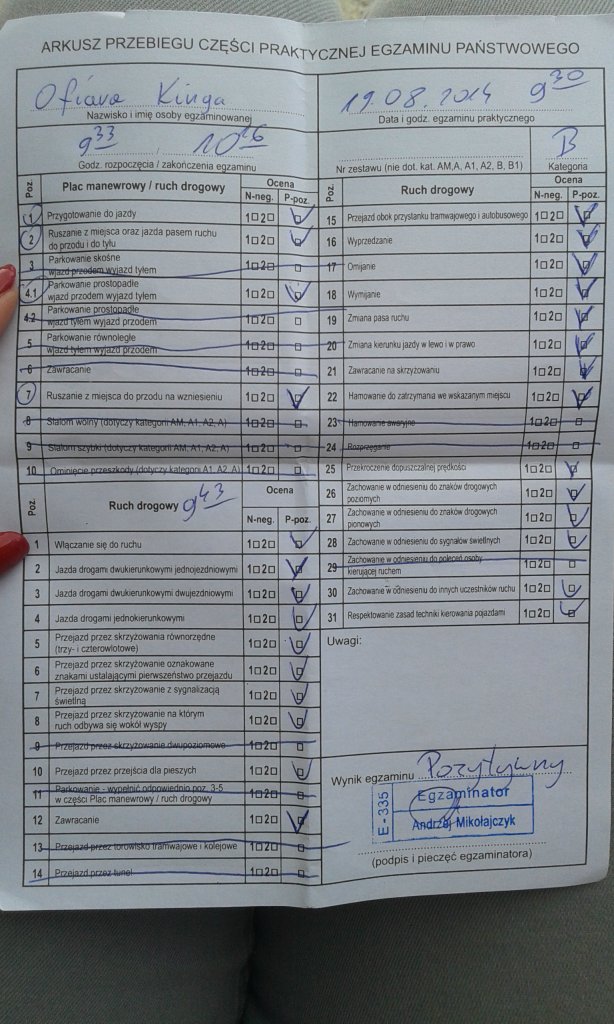 ARKUSZ PRZEBIEGU CZĘŚCI PRAKTYCZNEJ EGZAMINU PAŃSTWOWEGO
Ofiara Kinga
Nazwisko i imię osoby egzaminowanej
19.08.2014 9 30
Data i godz. egzaminu praktycznego
9 33 10 26
Godz. rozpoczęcia / zakończenia egzaminu
Nr zestawu (nie dot. kat. AM,A, A1, A2, B, B1)
B
Kategoria
Poz.
Plac manewrowy / ruch drogowy
Ocena
N-neg. P-poz.
1 Przygotowanie do jazdy 1□2□ □
2 Ruszanie z miejsca oraz jazda pasem ruchu
do przodu i do tyłu 1□2□ □
3 Parkowanie skośne
wjazd przodem wyjazd tyłem 1□2□ □
4.1 Parkowanie prostopadłe
wjazd przodem wyjazd tyłem 1□2□ □
4.2 Parkowanie prostopadłe
wjazd tyłem wyjazd przodem 1□2□ □
5 Parkowanie równoległe
wjazd tyłem wyjazd przodem 1□2□ □
6 Zawracanie 1□2□ □
7 Ruszanie z miejsca do przodu na wzniesieniu 1□2□ □
8 Slalom wolny (dotyczy kategorii AM, A1, A2, A) 1□2□ □
9 Slalom szybki (dotyczy kategorii AM, A1, A2, A) 1□2□ □
10 Ominięcie przeszkody (dotyczy kategorii A1, A2, A) 1□2□ □
Poz.
Ruch drogowy 9 43
Ocena
N-neg. P-poz.
1 Włączanie się do ruchu 1□2□ □
2 Jazda drogami dwukierunkowymi jednojezdniowymi 1□2□ □
3 Jazda drogami dwukierunkowymi dwujezdniowymi 1□2□ □
4 Jazda drogami jednokierunkowymi 1□2□ □
5 Przejazd przez skrzyżowania równorzędne
(trzy- i czterowlotowe) 1□2□ □
6 Przejazd przez skrzyżowania oznakowane
znakami ustalającymi pierwszeństwo przejazdu 1□2□ □
7 Przejazd przez skrzyżowanie z sygnalizacją
świetlną 1□2□ □
8 Przejazd przez skrzyżowanie na którym
ruch odbywa się wokół wyspy 1□2□ □
9 Przejazd przez skrzyżowanie dwupoziomowe 1□2□ □
10 Przejazd przez przejścia dla pieszych 1□2□ □
11 Parkowanie - wypełnić odpowiednio poz. 3-5
w części Plac manewrowy / ruch drogowy 1□2□ □
12 Zawracanie 1□2□ □
13 Przejazd przez torowisko tramwajowe i kolejowe 1□2□ □
14 Przejazd przez tunel 1□2□ □
Poz.
Ruch drogowy
Ocena
N-neg. P-poz.
15 Przejazd obok przystanku tramwajowego i autobusowego 1□2□ □
16 Wyprzedzanie 1□2□ □
17 Omijanie 1□2□ □
18 Wymijanie 1□2□ □
19 Zmiana pasa ruchu 1□2□ □
20 Zmiana kierunku jazdy w lewo i w prawo 1□2□ □
21 Zawracanie na skrzyżowaniu 1□2□ □
22 Hamowanie do zatrzymania we wskazanym miejscu 1□2□ □
23 Hamowanie awaryjne 1□2□ □
24 Rozprzęganie 1□2□ □
25 Przekroczenie dopuszczalnej prędkości 1□2□ □
26 Zachowanie w odniesieniu do znaków drogowych
poziomych 1□2□ □
27 Zachowanie w odniesieniu do znaków drogowych
pionowych 1□2□ □
28 Zachowanie w odniesieniu do sygnałów świetlnych 1□2□ □
29 Zachowanie w odniesieniu do poleceń osoby
kierującej ruchem 1□2□ □
30 Zachowanie w odniesieniu do innych uczestników ruchu 1□2□ □
31 Respektowanie zasad techniki kierowania pojazdami 1□2□ □
Uwagi:
Wynik egzaminu Pozytywny
E-335
Egzaminator
Andrzej Mikołajczyk
(podpis i pieczęć egzaminatora)